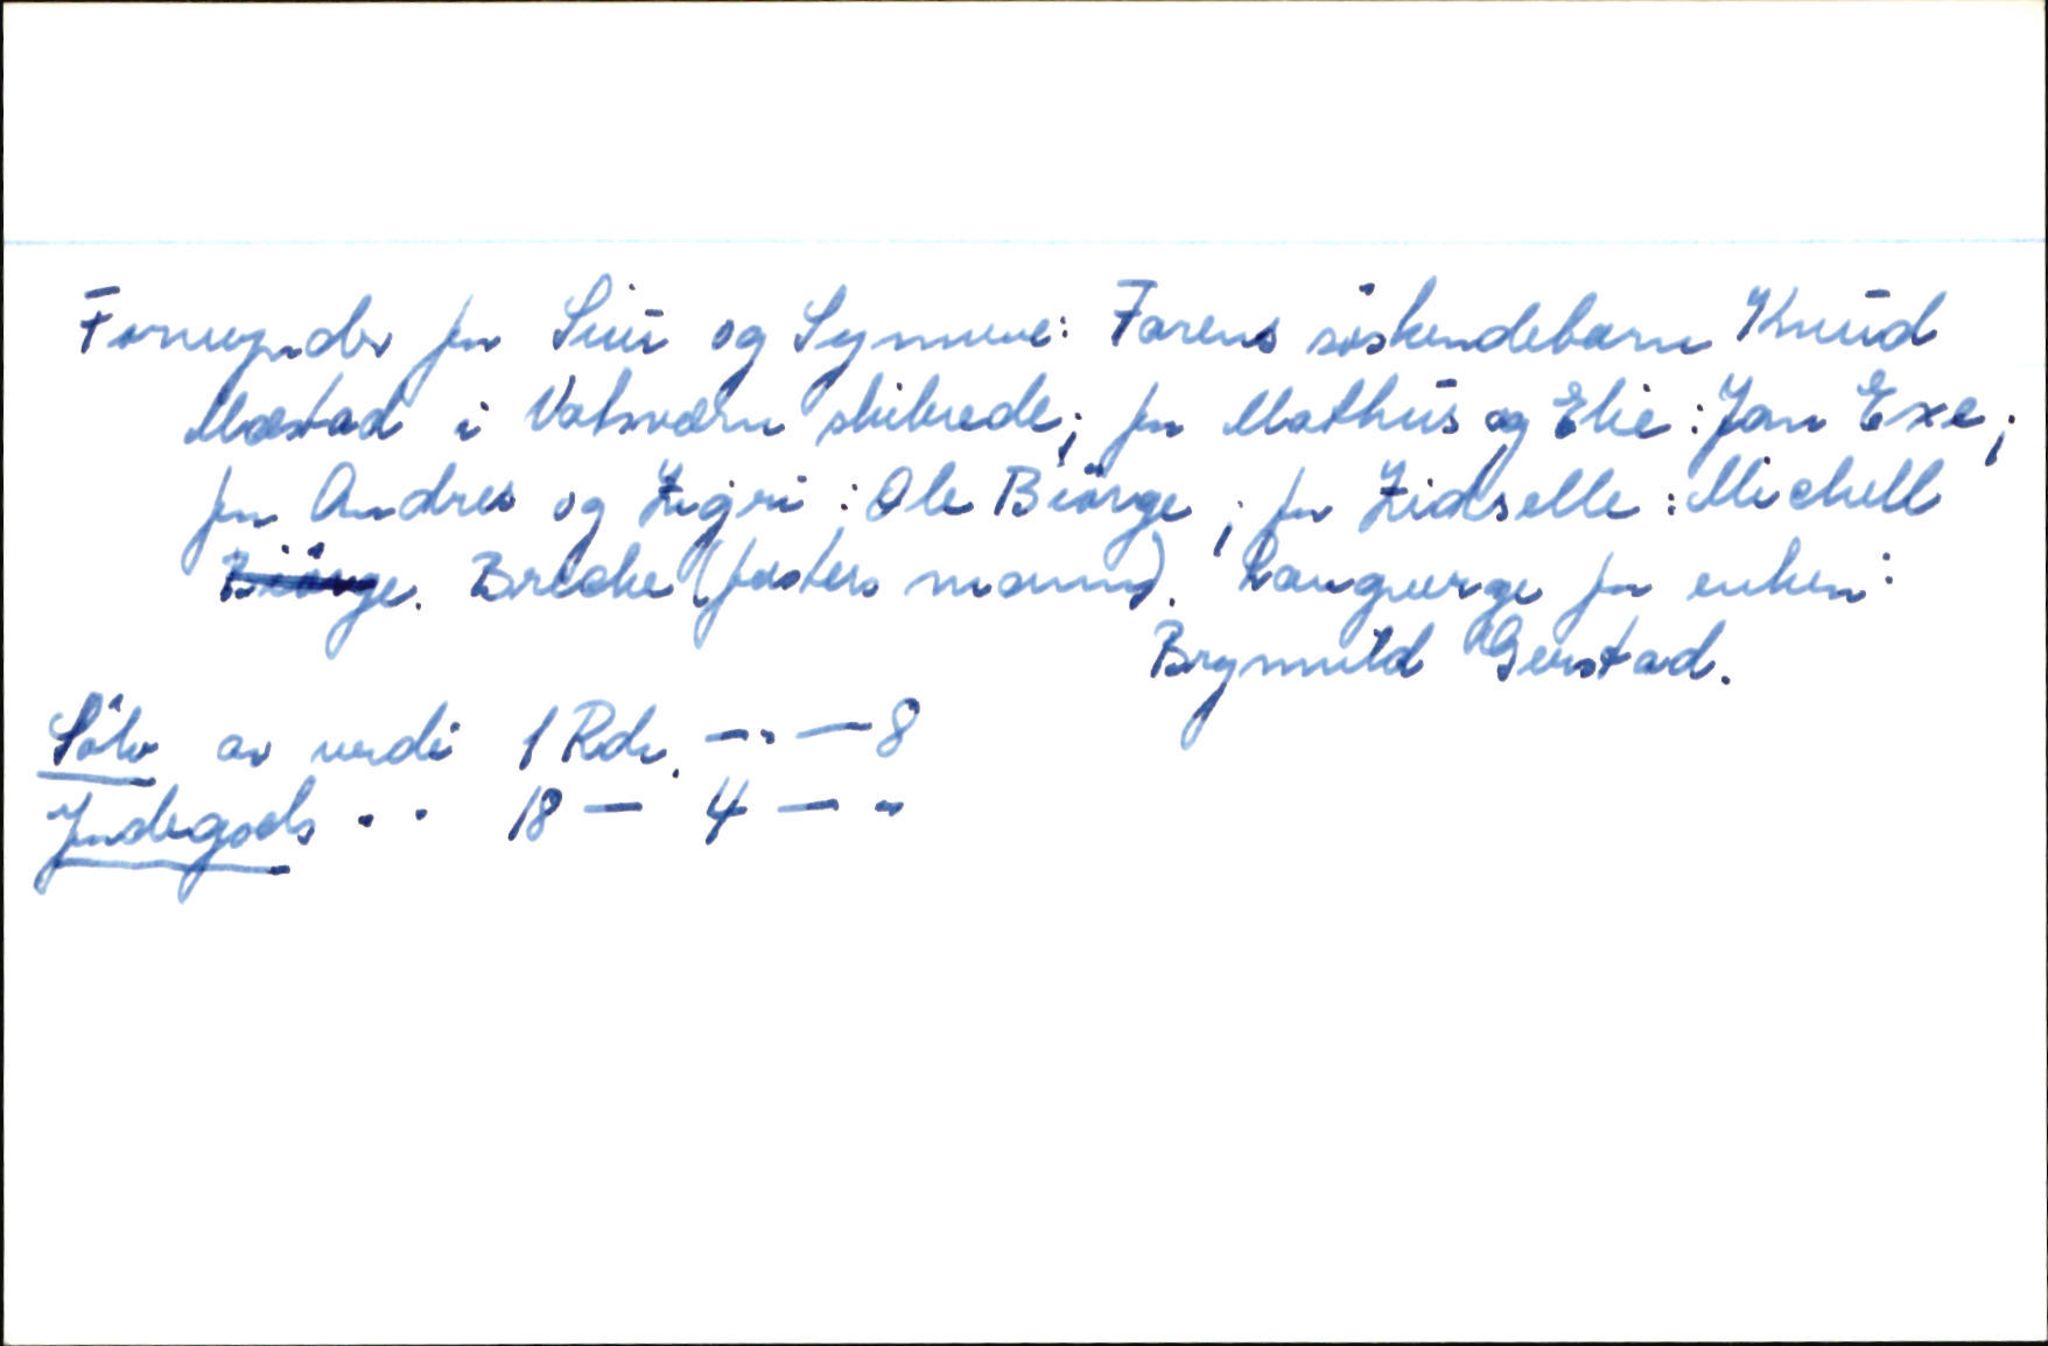 Formynder for Siur og Synneve: Farens söskendebarn Knud
Mæstad i Vatsværn skibrede; for Mathus og Elie: Jon Exe;
for Andres og Zigri: Ole Biörge; for Zidselle: Michell
Biörge. Brecke (fasters mann). Laugverge for enken:
Brynnild Gerstad.
Sölv av verdi 1 Rdr. — " — 8
Jndegods " " 18 — 4 — "